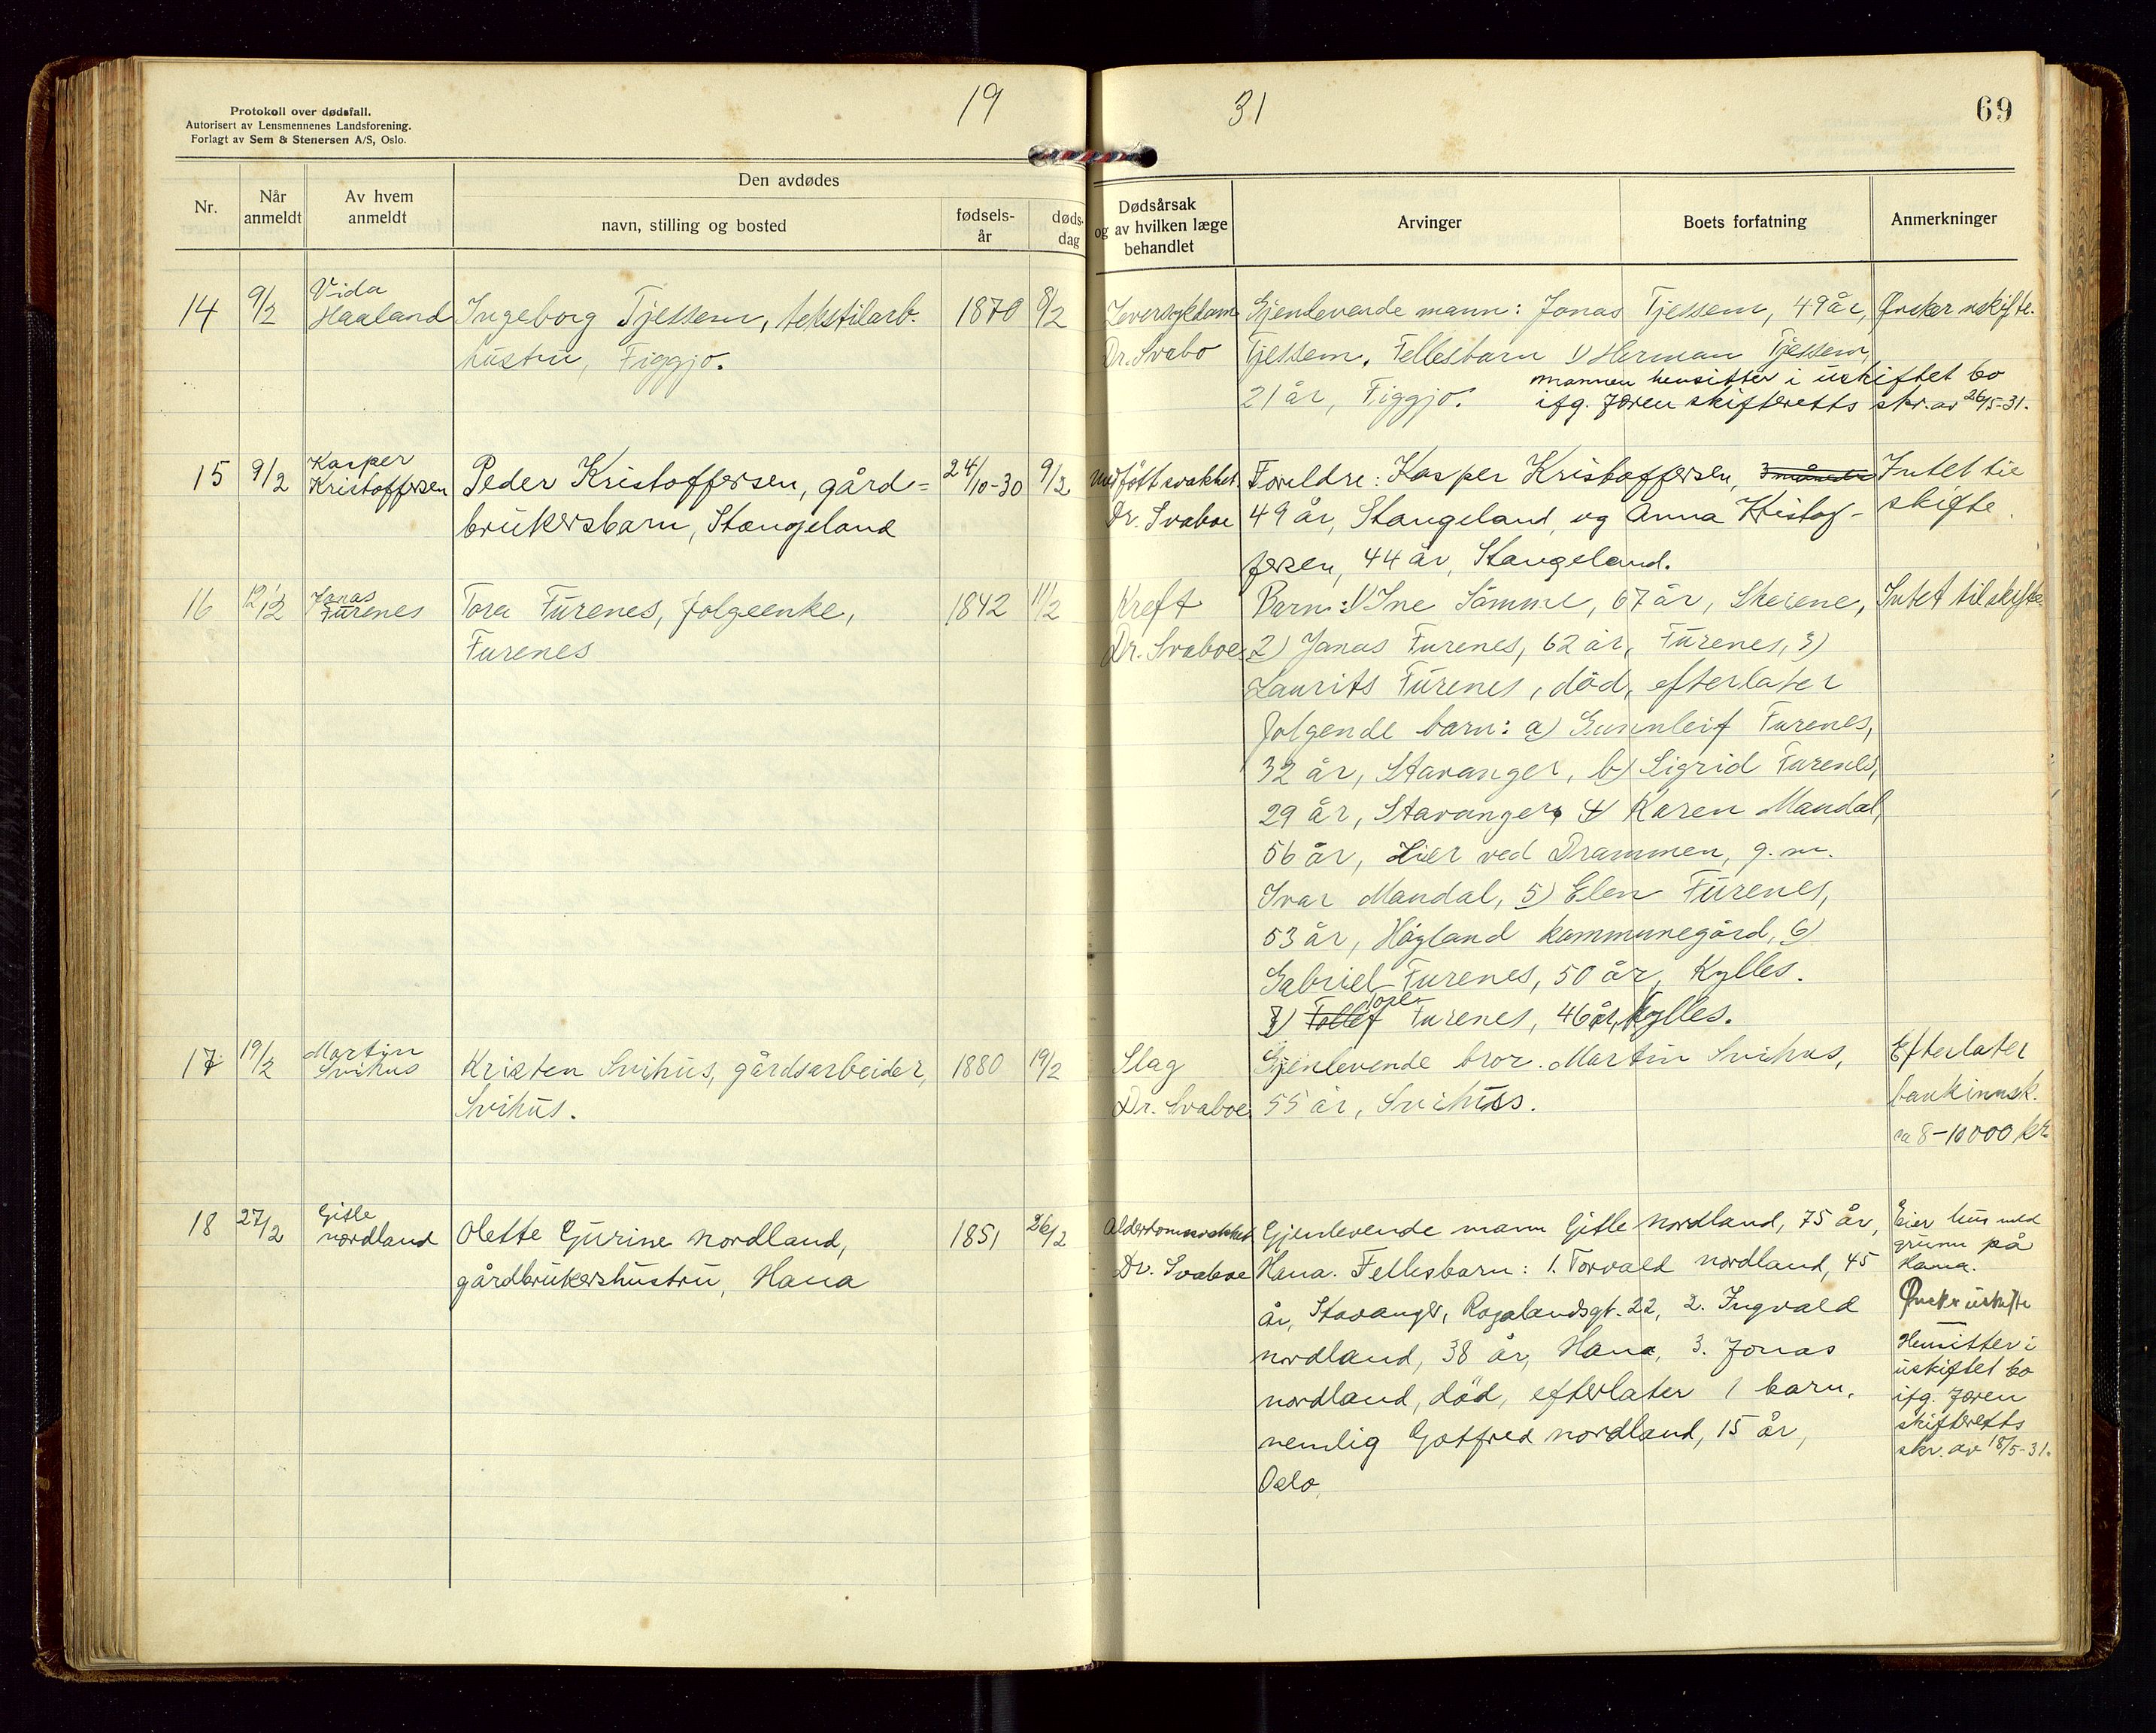 Protokoll over dødsfall.
Autorisert av Lensmennenes Landsforening.
Forlagt av Sem & Stenersen A/S, Oslo.
19
31
69
Nr.
Når
anmeldt
Av hvem
anmeldt
Den avdødes
navn, stilling og bosted
fødsels-
år
døds-
dag
Dødsårsak
og av hvilken læge
behandlet
Arvinger
Boets forfatning
Anmerkninger
14
9/2
Vida
Haaland
Ingeborg Tjessem, tekstilarb.
hustru, Figgjo.
1870
8/2
Leversykdom
Dr. Svabo
Gjenlevende mann: Jonas Tjessem, 49 år,
Tjessem. Fellesbarn 1) Herman Tjessem,
21 år, Figgjo.
mannen hensitter i uskiftet bo
ifg. Jæren skifteretts skr. av 26/5-31.
Ønsker uskifte.
15
9/2
Kasper
Kristoffersen
Peder Kristoffersen, gård=
brukersbarn, Stangeland
24/10-30
9/2
Medfött svakhet
Dr. Svaboe
Foreldre: Kasper Kristoffersen, 3 måneder
49 år, Stangeland, og Anna Kristof-
fersen, 44 år, Stangeland.
Intet til
skifte.
16
12/2
Jonas
Furenes
Tora Furenes, folgeenke,
Furenes
1842
11/2
Kreft
Dr. Svaboe
Barn: 1) Ine Sömme, 67 år, Skeiene,
2) Jonas Furenes, 62 år, Furenes, 3)
Laurits Furenes, död, efterlater
folgende barn: a) Gunnleif Furenes,
32 år, Stavanger, b) Sigrid Furenes,
29 år, Stavanger, 4) Karen Mandal,
56 år, Lier ved Drammen, g. m.
Ivar Mandal, 5) Elen Furenes,
53 år, Högland kommunegård, 6)
Gabriel Furenes, 50 år, Kylles.
7) Tollef Furenes, 46 år, Kylles.
Intet til skifte.
17
19/2
Martin
Svihus
Kristen Svihus, gårdsarbeider,
Svihus.
1880
19/2
Slag
Dr. Svaboe
Gjenlevende bror. Martin Svihus,
55 år, Svihus.
Efterlater
bankinnsk.
ca 8-10000 kr.
18
27/2
Gitle
Nordland
Olette Gurine Nordland,
gårdbrukershustru, Hana
1851
26/2
Alderdomssvakhet
Dr. Svaboe
Gjenlevende mann Gitle Nordland, 75 år,
Hana. Fellesbarn: 1. Torvald Nordland, 45
år, Stavanger, Rogalandsgt. 22, 2. Ingvald
Nordland, 38 år, Hana, 3. Jonas
Nordland, död, efterlater 1 barn,
nemlig Gotfred Nordland, 15 år,
Oslo.
Eier hus med
grunn på
Hana.
Ønsker uskifte
Hensitter i
uskiftet bo
ifg. Jæren
skifteretts
skr. av 18/5-31.